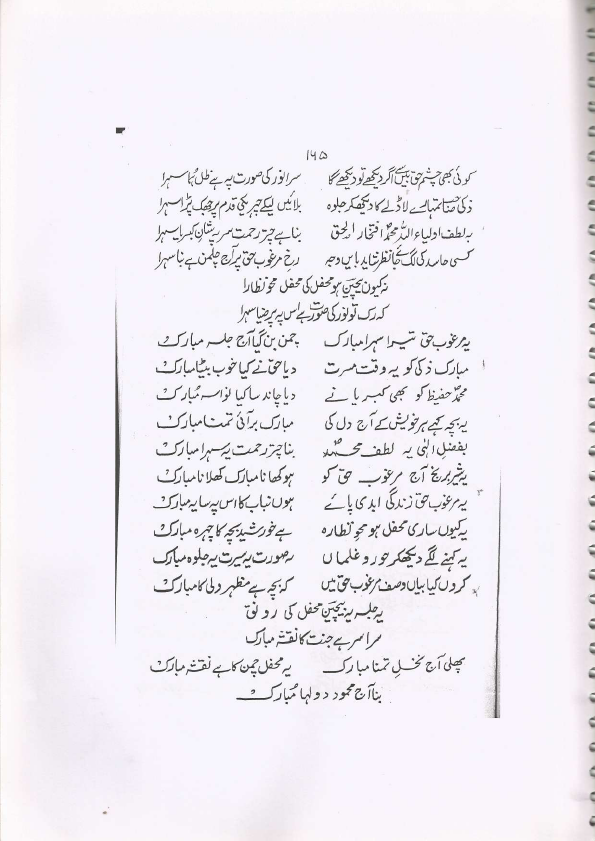 ۱۶۵
کوئی بھی چشم حق بیں سے اگر دیکھے تو دیکھے گا سر انور کی صورت پہ ہے ظل ہما سہرا
ذکی صاحب تمہارے لاڈلے کا دیکھکر جلوہ بلائیں لیکے چہرے کی قدم پر جھک پڑا سہرا
بہ لطف اولیاء اللہ محمد افتخار الحق بنا ہے چتر رحمت سر پہ شان کبریا سہرا
کسی حاسد کی لگ جائے نظر شاید بایں وجہ رخ مرغوب حق پر آج چلمن ہے بنا سہرا
نہ کیوں بیچین ہو محفل کی محفل محو نظارا
کہ رک تو نور کی صورت ہے اس پہ پر ضیا سہرا
یہ مرغوب حق تیرا سہرا مبارک چمن بن گیا آج جلسہ مبارک
مبارک ذکی کو یہ وقت مسرت دیا حق نے کیا خوب بیٹا مبارک
محمد حفیظ کو بھی کبریا نے دیا چاند سا کیا نواسہ مبارک
یہ بچہ کہے ہر خویش کے آج دل کی مبارک بر آئی تمنا مبارک
بفضل الٰہی بہ لطف محمدؐ بنا چتر رحمت یہ سہرا مبارک
یہ شیر برنج آج مرغوب حق کو ہو کھانا مبارک کھلانا مبارک
یہ مرغوب حق زندگی ابدی پائے ہوں نباب کا اس پہ سایہ مبارک
یہ کیوں ساری محفل ہو محو نظارہ ہے خورشید بچہ کا چہرہ مبارک
یہ کہنے لگے دیکھکر حور و غلماں یہ صورت یہ سیرت یہ جلوہ مبارک
کروں کیا بیاں وصف مرغوب حق میں کہ بچہ ہے مظہر ولی کا مبارک
یہ جلسہ یہ بیچین محفل کی رونق
سراسر ہے جنت کا نقشہ مبارک
پھلی آج نخل تمنا مبارک یہ محفل چمن کا ہے نقشہ مبارک
بنا آج محمود دولہا مبارک